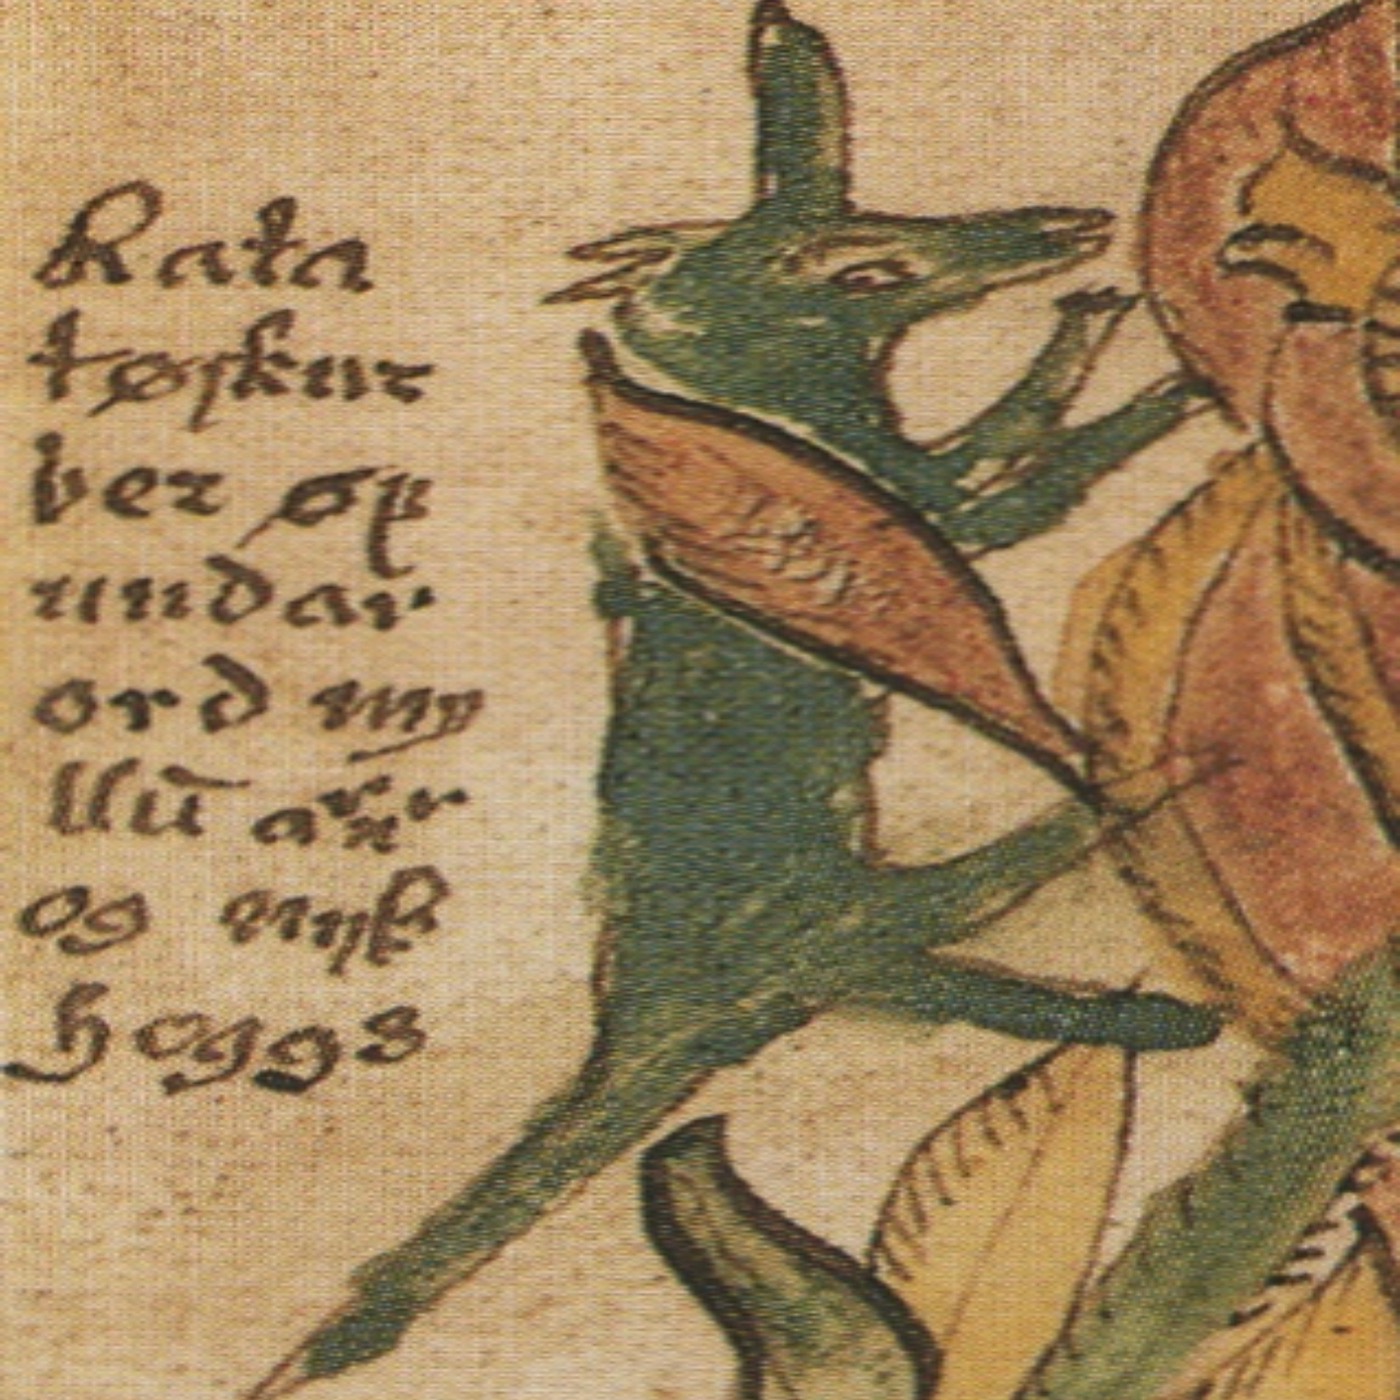 Rata
tøſkur
ber øf
undar
ord my
llū arnr
og nyh
hoggs